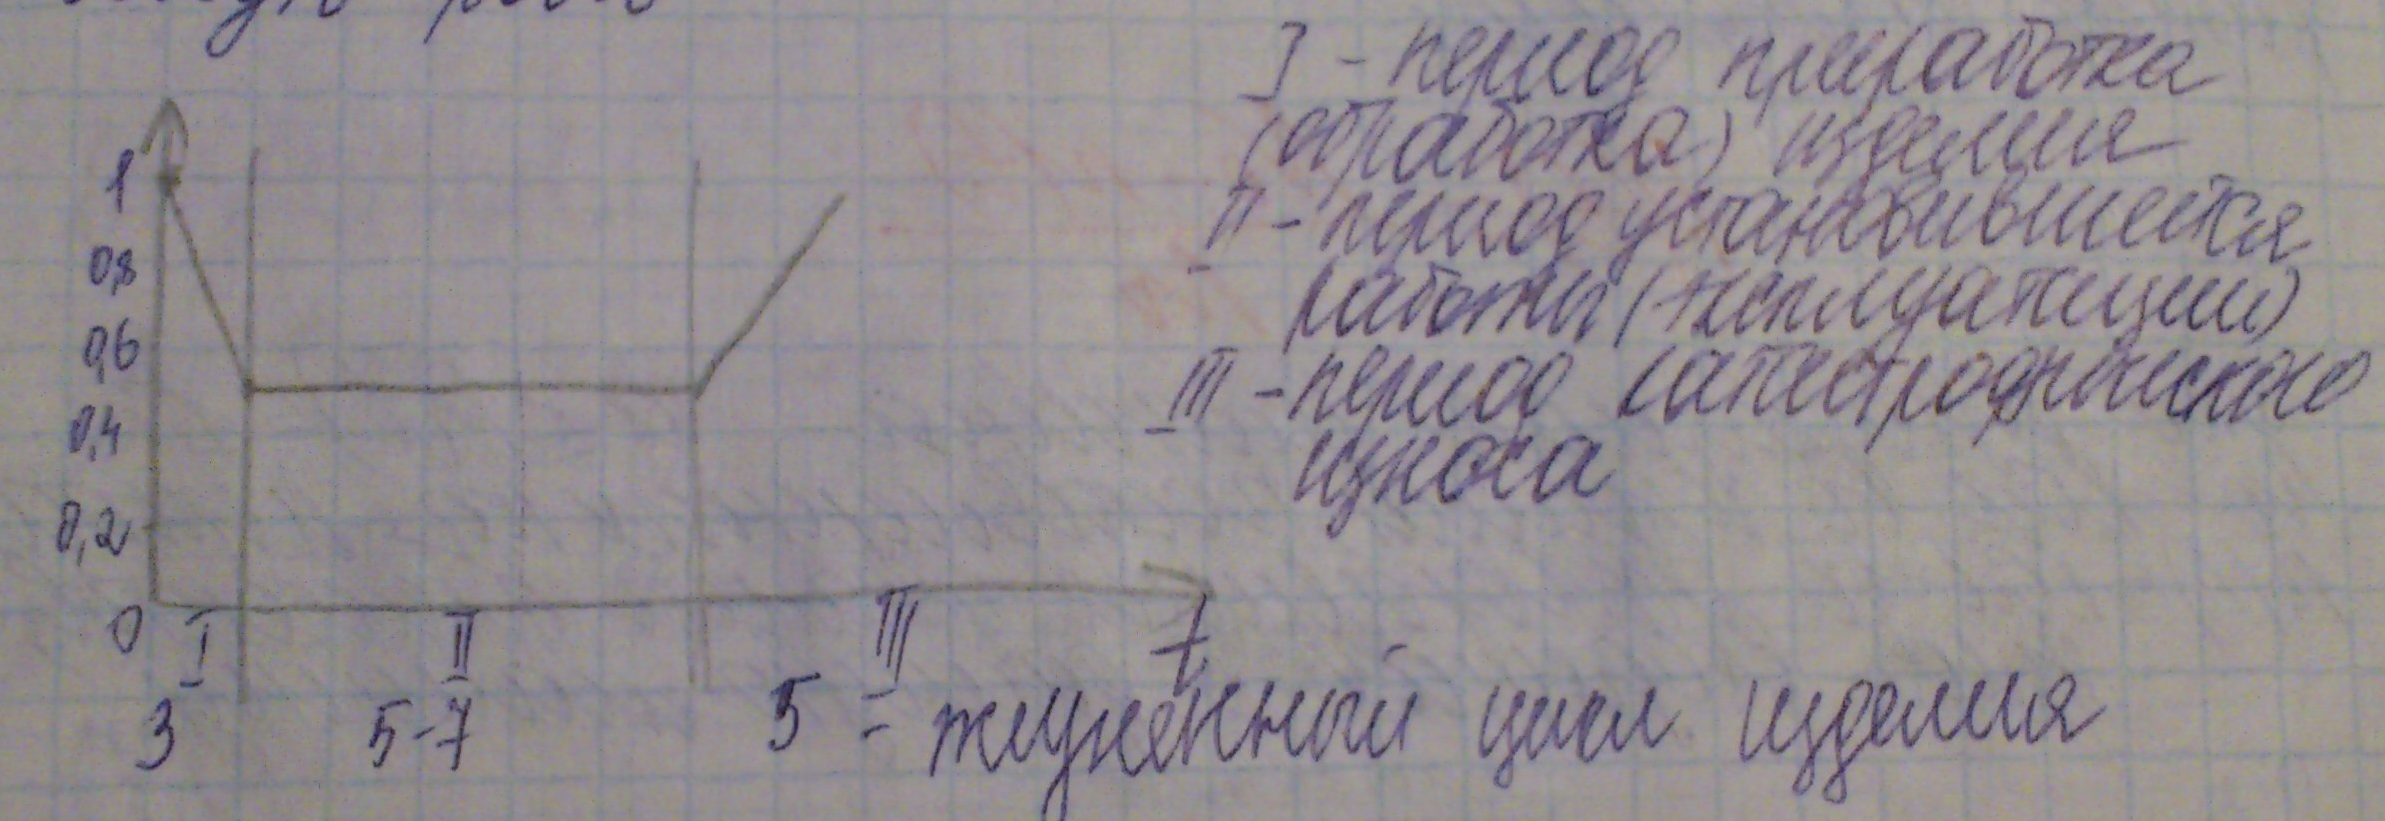 I - период приработка
(обработка) изделия
II - период установившейся
работы (эксплуатации)
III - период катастрофического
износа
1
0,8
0,6
0,4
0,2
0 I II III t
3 5-7 5 = жизненный цикл изделия